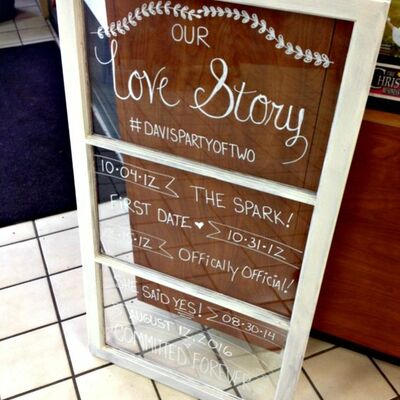 OUR
Love Story
#DAVISPARTYOFTWO
10·04·12 THE SPARK!
FIRST DATE ♥ 10·31·12
12 OFFICALLY OFFICIAL!
SHE SAID YES! 08·30·14
AUGUST 12, 2016
COMMITTED FOREVER
THE
CHRIS